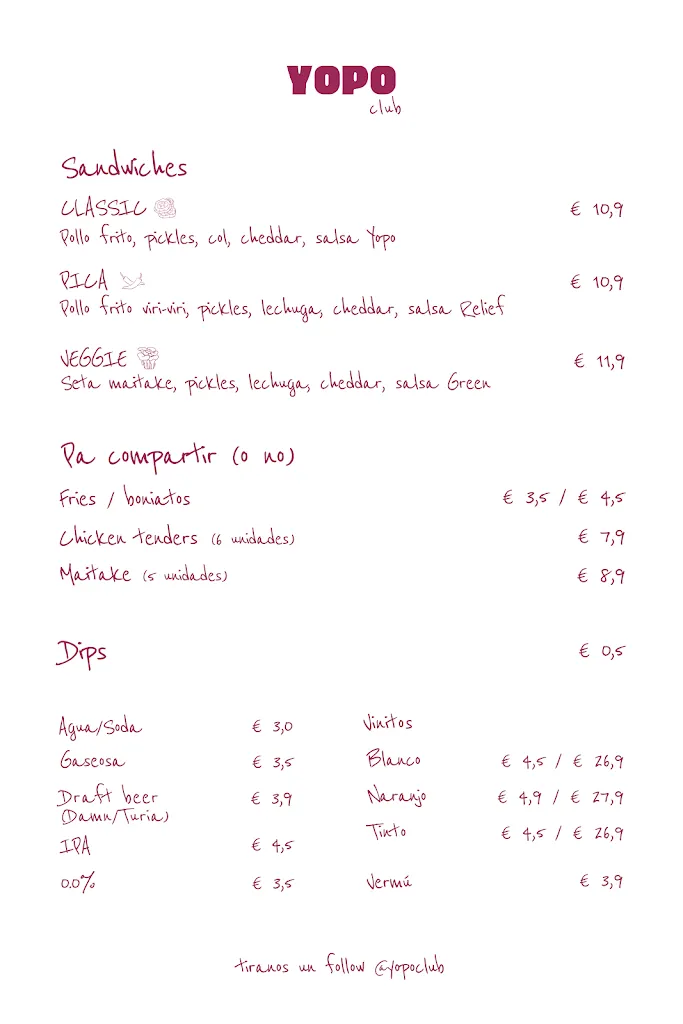 YOPO
club
Sandwiches
CLASSIC € 10,9
Pollo frito, pickles, col, cheddar, salsa Yopo
PICA € 10,9
Pollo frito viri-viri, pickles, lechuga, cheddar, salsa Relief
VEGGIE € 11,9
Seta maitake, pickles, lechuga, cheddar, salsa Green
Pa compartir (o no)
Fries / boniatos € 3,5 / € 4,5
Chicken tenders (6 unidades) € 7,9
Maitake (5 unidades) € 8,9
Dips € 0,5
Agua/Soda € 3,0
Gaseosa € 3,5
Draft beer € 3,9
(Damn/Turia)
IPA € 4,5
0.0% € 3,5
Vinitos
Blanco € 4,5 / € 26,9
Naranjo € 4,9 / € 27,9
Tinto € 4,5 / € 26,9
Vermú € 3,9
tiranos un follow @yopoclub